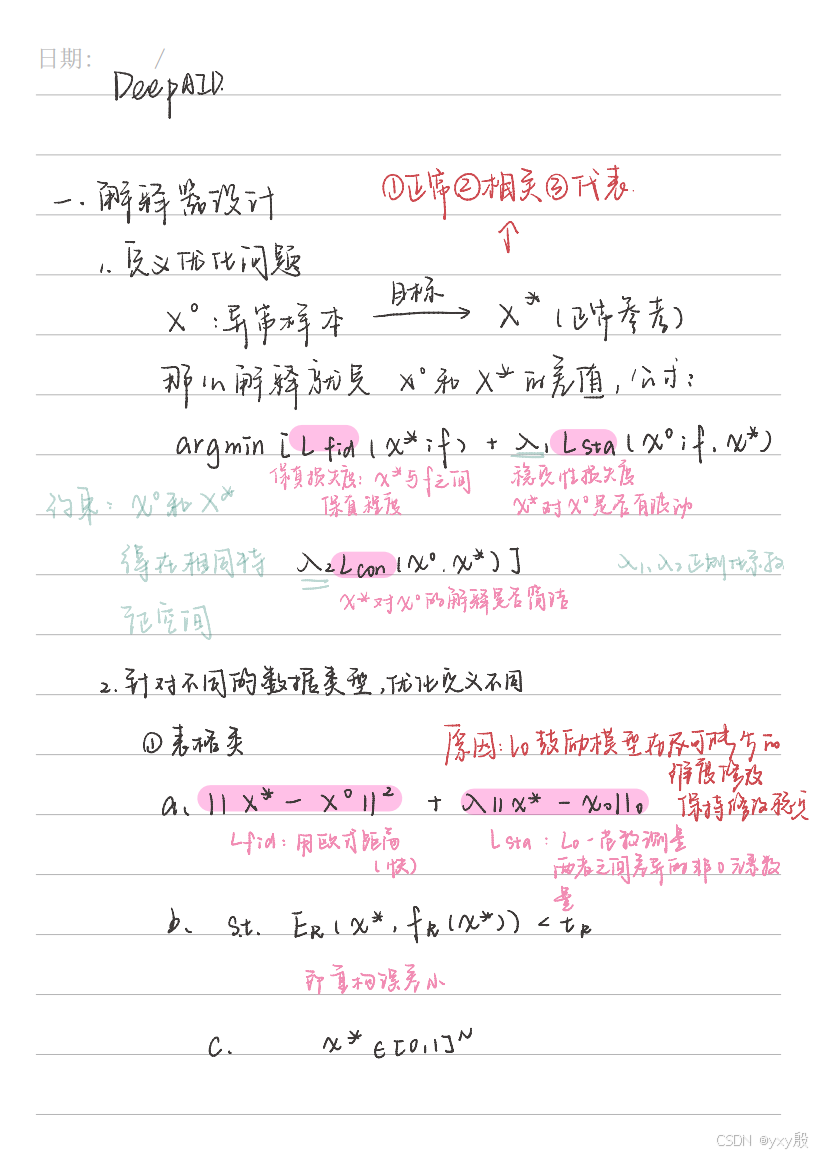 日期: /
DeepAID.
一. 解释器设计
①正常②相关③代表.
↑
1. 定义优化问题
X°:异常样本 目标→ X*(正常参考)
那么解释就是 x°和X*的差值,公式:
argmin [Lfid(x*;f) + λ₁Lsta(x°;f,x*)
保真损失度: x*与f之间
保真程度
稳定性损失度
x*对x°是否有波动
约束: x°和X*
得在相同特
征空间
λ₂Lcon(x°,x*)]
λ₁、λ₂正则化系数
x*对x°的解释是否简洁
2. 针对不同的数据类型,优化定义不同
① 表格类
原因: L0鼓励模型在尽可能少的
维度修改
保持修改稳定
a. ||X* - X°||² + λ||x* - x₀||₀
Lfid: 用欧式距离
(快)
Lsta: L0-范数测量
两者之间差异的非0元素数
量
b. s.t. ER(x*, fR(x*)) < tR
即重构误差小
c. x* ∈ [0,1]ᴺ
CSDN @yxy殷